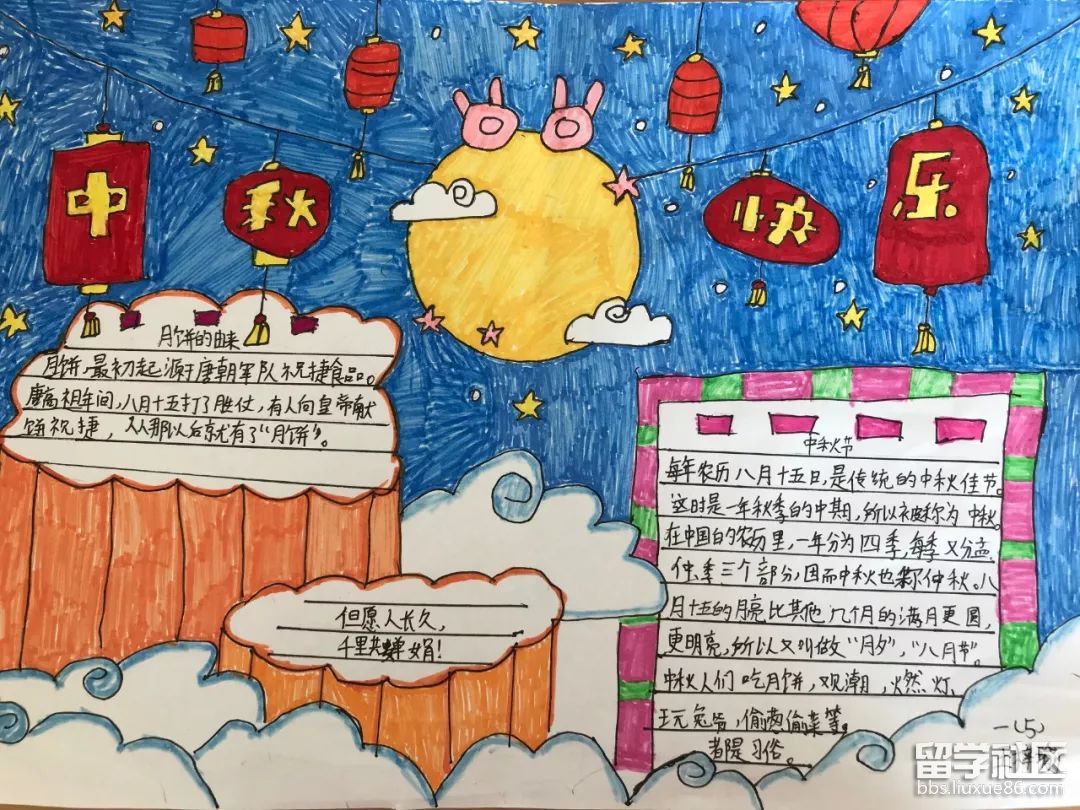 中 秋 快 乐
月饼的由来
月饼,最初起源于唐朝军队祝捷食品。
唐高祖年间,八月十五打了胜仗,有人向皇帝献
饼祝捷,从那以后就有了“月饼”。
但愿人长久,
千里共婵娟!
中秋节
每年农历八月十五日,是传统的中秋佳节。
这时是一年秋季的中期,所以被称为中秋。
在中国的农历里,一年分为四季,每季又分孟、
仲、季三个部分,因而中秋也称仲秋。八
月十五的月亮比其他几个月的满月更圆,
更明亮,所以又叫做“月夕”,“八月节”。
中秋人们吃月饼,观潮,燃灯、
玩兔爷,偷葱偷菜等。
都是习俗。
一(5)
留学社区
bbs.liuxue86.com